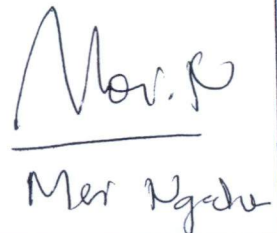 Mor. N
Mer Ngache